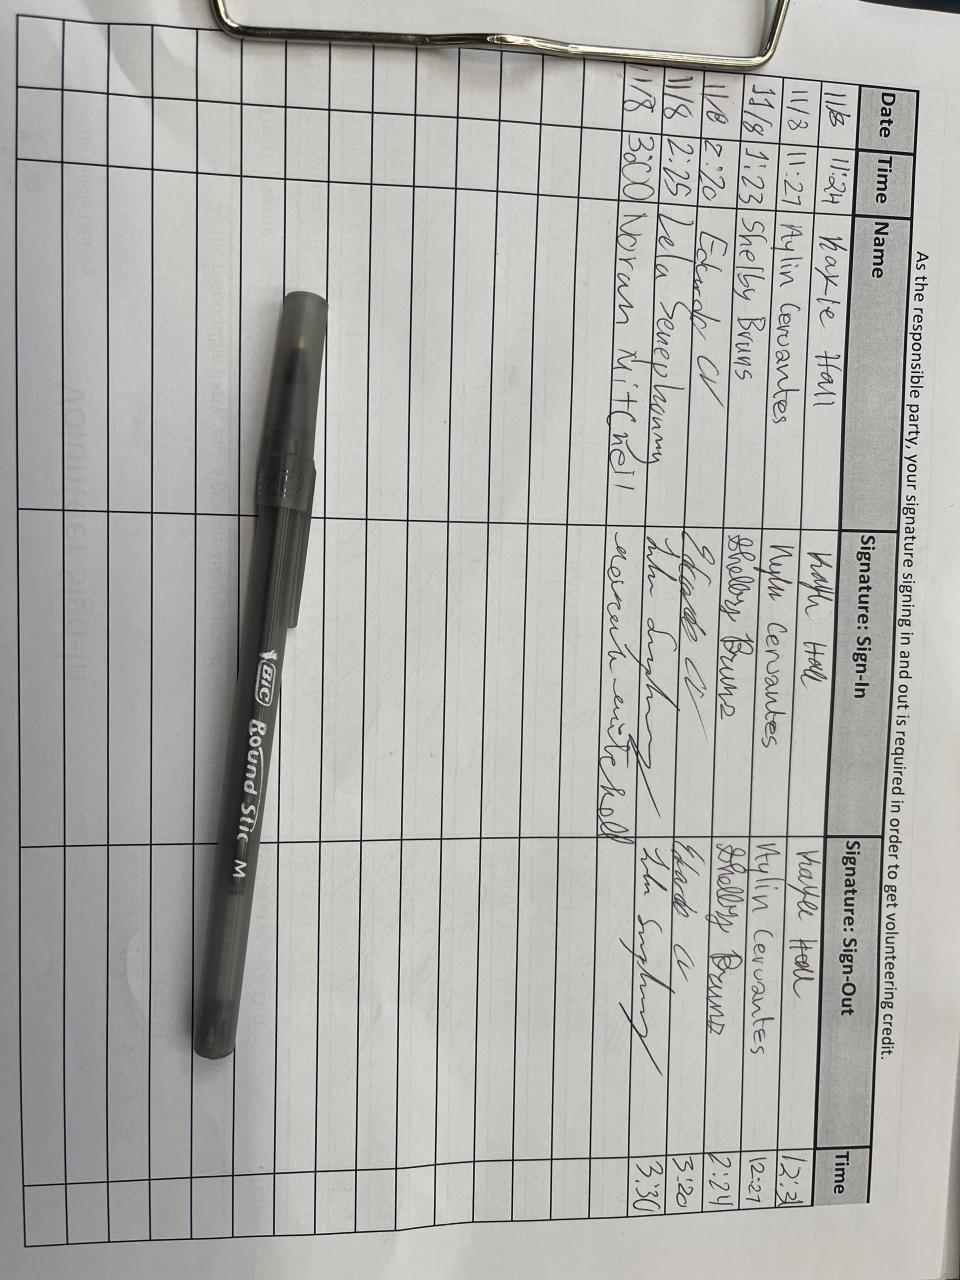 As the responsible party, your signature signing in and out is required in order to get volunteering credit.
Date Time Name Signature: Sign-In Signature: Sign-Out Time
11/8 11:24 Kaylie Hall Hall Kaylie Hall 12:31
11/8 11:27 Aylin Cervantes Aylin Cervantes Aylin Cervantes 12:27
11/8 1:23 Shelby Bruns Shelby Bruns Shelby Bruns 2:24
11/8 2:20 Eduardo CV Eduardo CV Eduardo CV 3:20
11/8 2:25 Lela 3:30
11/8 3:00 Norah Mitchell Norah Mitchell
BIC Round Stic M